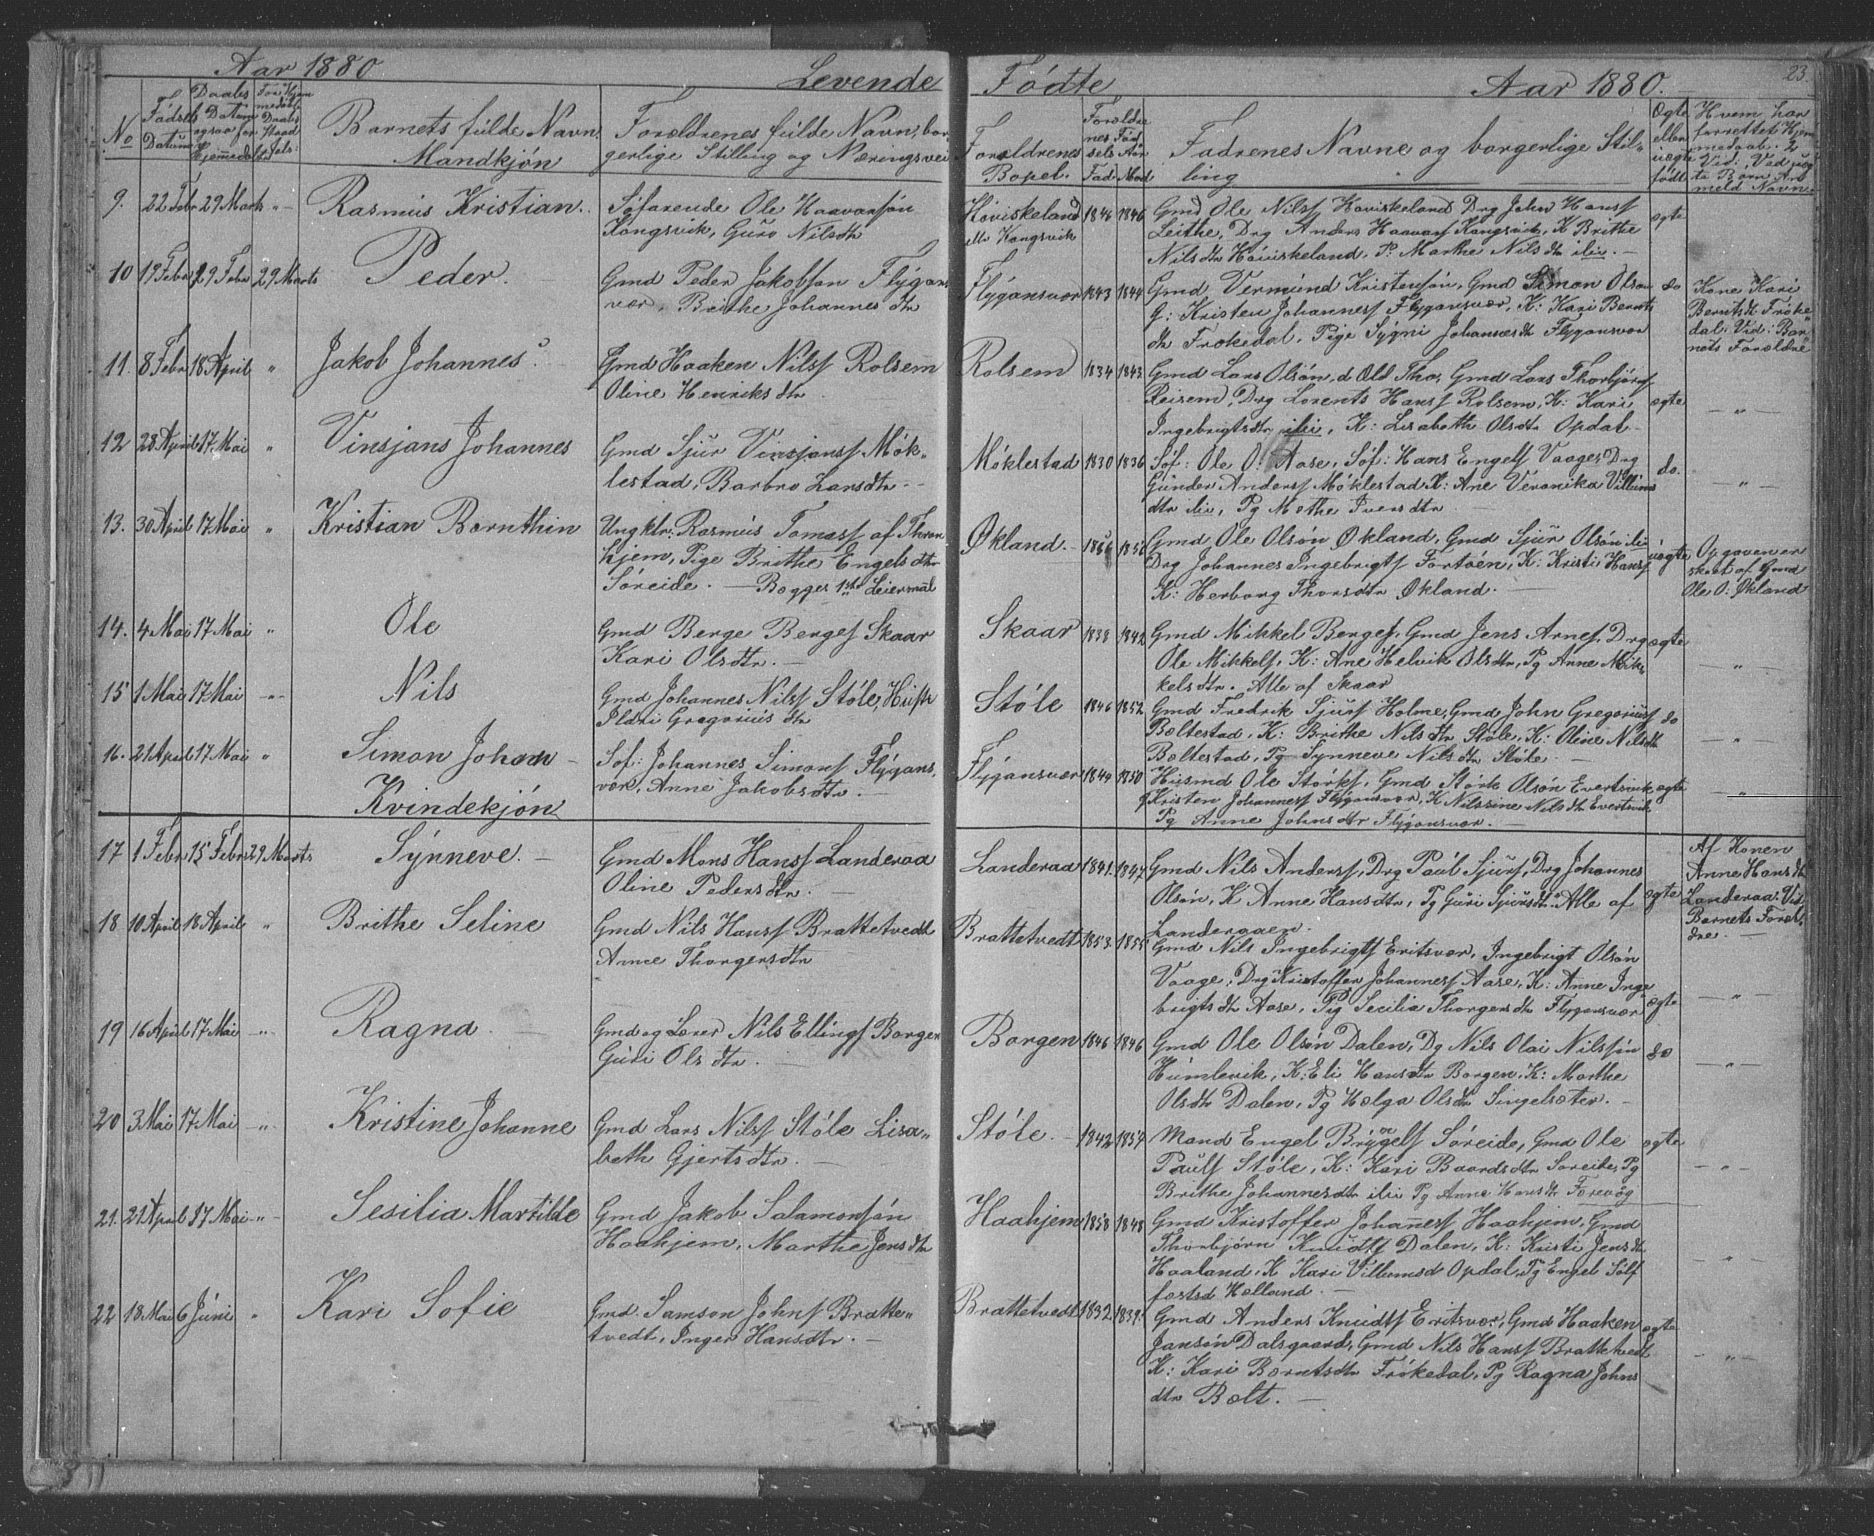 Aar 1880
Levende
Födte
Aar 1880.
23.
No
Födsels Datum
Daabs Datum ogsaa for Hjemmedaab
Barnets fulde Navn
Mandkjön
Forældrenes fulde Navn, bor-
gerlige Stilling og Næringsvei
Forældrenes
Bopæl.
Forældre
nes Föd
sels Aar
Fad. Mod
Fadrenes Navne og borgerlige Stil-
ling
Ægte
eller
uægte
födt
Hvem har
forrettet Hjem
medaab. 2
Vid: Ved uæg
te Börn An
meld Navne
9. 22 Febr 29 Marts "
Rasmus Kristian.
Söfarende Ole Haavarsön
Kongsvik, Guro Nilsdtr
Höviskeland
elb Kongsvik
1846 1846
Gmd Ole Nilss Höviskeland Drg John Hanss
Leithe, Drg Anders Haavars Kongsvik, K Brithe
Nilsdtr Höviskeland, P. Marthe Nilsdtr ibi. –
ægte
10 19 Febr 29 Febr 29 Marts
Peder.
Gmd Peder Jakobsön Flygans
vær, Brithe Johannesdtr
Flygansvær
1843 1844
Gmd Vermund Kristensön, Gmd Simon Olsön
G: Kristen Johanness Flygansvær, K: Kari Bernts
dtr Frökedal, Pige Sygni Johansdtr Flygansvær
do
Kone Kari
Berntsdtr Fröke
dal. Vid: Bar
nets Forældre
11. 8 Febr 18 April "
Jakob Johannes
Gmd Haaken Nilss Rolsem
Oline Henriksdtr
Rolsem
1834 1843
Gmd Lars Olsön, d Old Tho, Gmd Lars Thorbjörns
Reisem, Drg Lorents Hanss Rolsem, K: Kari
Ingebrigtsdtr ibi, K: Lisabeth Olsdtr Opdal –
ægte
– " –
12 28 April 17 Mai "
Vinsjans Johannes
Gmd Sjur Vinsjanss Mök-
lestad, Barbro Larsdtr –
Möklestad
1830 1836
Söf: Ole O: Aase, Söf: Hans Engels Vaage, Drg
Gunder Anderss Möklestad K: Ane Veronika Villums
dtr ibi, Pg Marthe Iversdtr –
do.
– " –
13. 30 April 17 Mai "
Kristian Bernthin
Ungktr: Rasmus Tomass af Thron
hjem, Pige Brithe Engelsdtr
Söreide. – Begges 1ste Leiermaal
Økland. –
1856 1856
Gmd Ole Olsön Økland, Gmd Sjur Olsön ibi
Drg Johannes Ingebrigts Fortöen, K: Kristi Hanss
K: Herborg Thorsdtr Økland. –
uægte
Opgaven er
skeet af Gmd
Ole O: Økland
14. 4 Mai 17 Mai "
Ole
Gmd Berge Bergess Skaar
Kari Olsdtr. –
Skaar
1838 1842
Gmd Mikkel Bergess, Gmd Jens Arness, Drg
Ole Mikkelss, K: Ane Helvik Olsdtr, Pg Anne Mik-
kelsdtr. Alle af Skaar
ægte
– " –
15 1 Mai 17 Mai "
Nils
Gmd Johannes Nilss Stöle, Hustr
Gregoriusdtr
Stöle
1846 1852
Gmd Fredrik Sjurs Holme, Gmd John Gregoriuss
Böltestad, K: Brithe Nilsdtr Stöle, K: Oline Nilsdtr
Boltestad, Pg Synneve Nilsdtr Stöle. –
do
– " –
16. 21 April 17 Mai "
Simon Johan –
Söf: Johannes Simons Flygans,
vær, Anne Jakobsdtr. –
Flygansvær
1844 1850
Husmd Ole Störks, Gmd Störk Olsön Evertsvik
G Kristen Johanness Flygansvær, K Nilssine Nilsdtr Evertsvik
Pg Anne Johnsdtr Flygansvær. –
ægte
– " –
Kvindekjön
17 1 Febr 15 Febr 29 Marts
Synneve. –
Gmd Mons Hanss Landeraa
Oline Pedersdtr. –
Landeraa
1841 1847
Gmd Nils Anderss, Drg Paul Sjurs, Drg Johannes
Olsön, K Anne Hansdtr, Pg Guri Sjursdtr Alle af
Landeraaen.
ægte
Af Konen
Anne Hansdtr
Landeraa. Vid
Barnets Foræl-
dre. –
18 10 April 18 April "
Brithe Seline
Gmd Nils Hanss Brattetvedt
Anne Thorgersdtr
Brattetvedt
1853 1855
Gmd Nils Ingebrigts Eritsvær, Ingebrigt Olsön
Vaage, Drg Kristoffer Johanness Aase, K: Anne Inge
brigtsdtr Aase, Pig Secilia Thorgersdtr Flygansvær
ægte
– " –
19 16 April 17 Mai "
Ragna. –
Gmd og Lærer Nils Ellings Borgen
Guri Olsdtr. –
Borgen
1846 1846
Gmd Ole Olsön Dalen, Dg Nils Olai Nilssön
Humlevik, K: Eli Hansdtr Borgen, K: Marthe
Olsdtr Dalen, Pg Helga Olsdtr Singelsæter. –
do
– " –
20 3 Mai 17 Mai "
Kristine Johanne
Gmd Lars Nilss Stöle Lisa-
beth Gjertsdtr. –
Stöle. –
1842 1857
Mand Engel Brygels Söreide, Gmd Ole
Pauls Stöle, K: Kari Baardsdtr Soreide, Pg
Brithe Johannesdtr ibi Pg Anne Hansdtr Forevåg
ægte
– " –
21. 21 April 17 Mai "
Sesilia Martilde
Gmd Jakob Salamonsön
Haahjem, Marthe Jensdtr
Haahjem
1858 1848
Gmd Kristoffer Johanness Haahjem, Gmd
Thorbjörn Knudts Dalen, K: Kristi Jensdtr
Haaland, K Kari Villumsd Opdal, Pg Engel Sölf
fostsd Helland. –
"
22 18 Mai 6 Juni "
Kari Sofie
Gmd. Samson Johns Bratte-
tvedt, Inger Hansdtr. –
Brattetvedt
1832 1839
Gmd Anders Knudts Eritsvær, Gmd Haaken
Jansön Dalsgaard, Gmd Nils Hanss Brattetvedt
K: Kari Berntsdtr Frökedal, Pg Ragna Johns
dtr Bolt. –
ægte
– " –